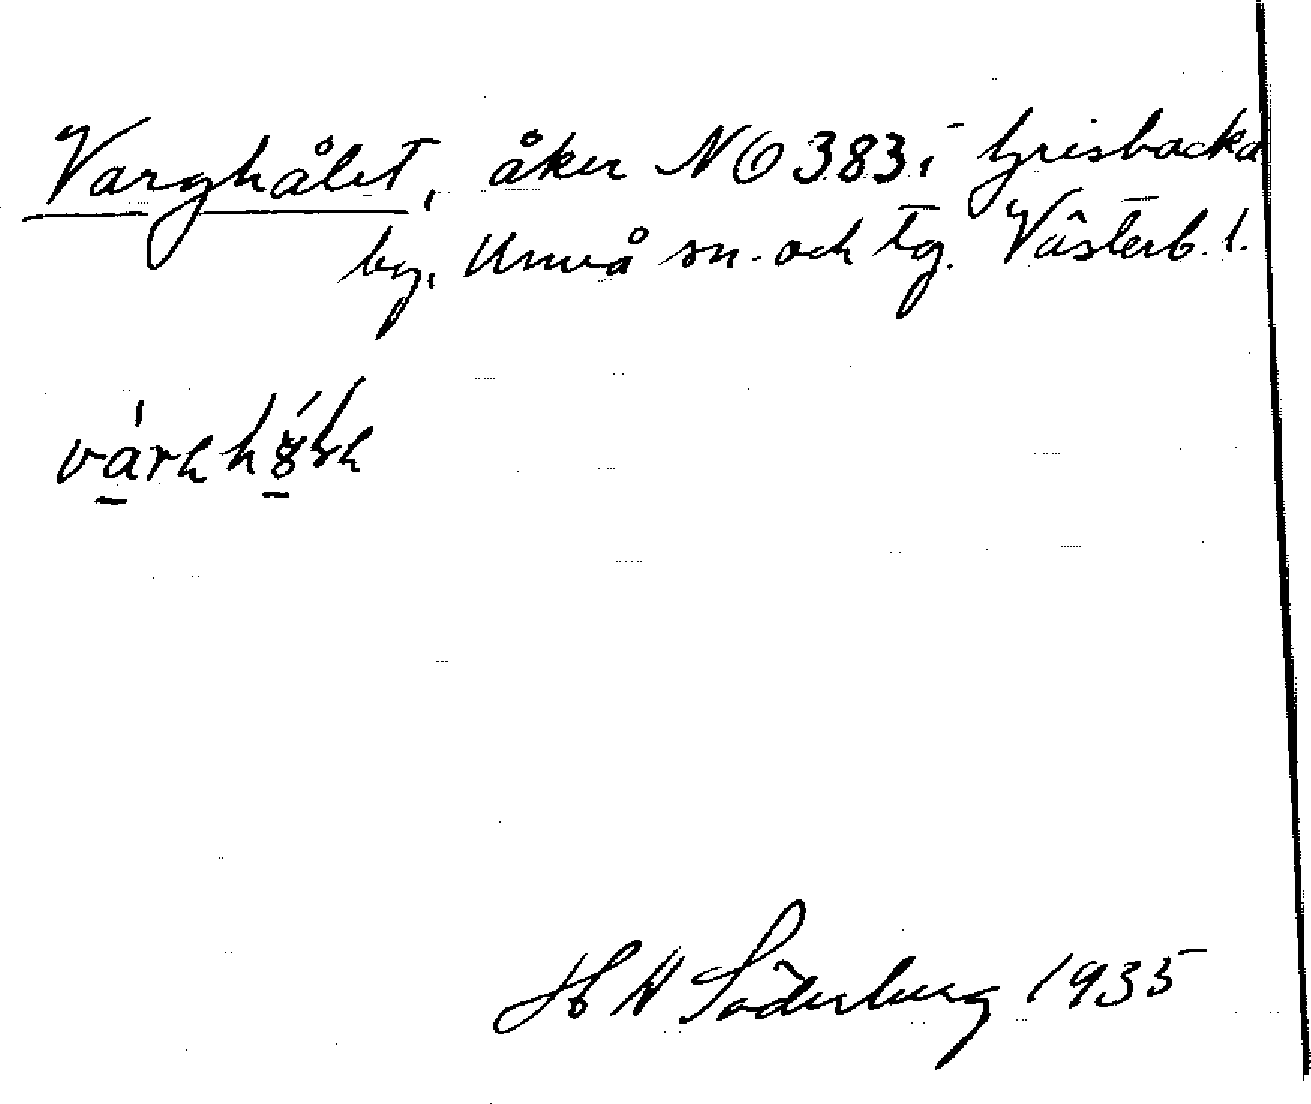 Varghålet, åker NO 383 i Grisbacka
by, Umeå sn. och tg. Västerb. l.
H W Söderberg 1935